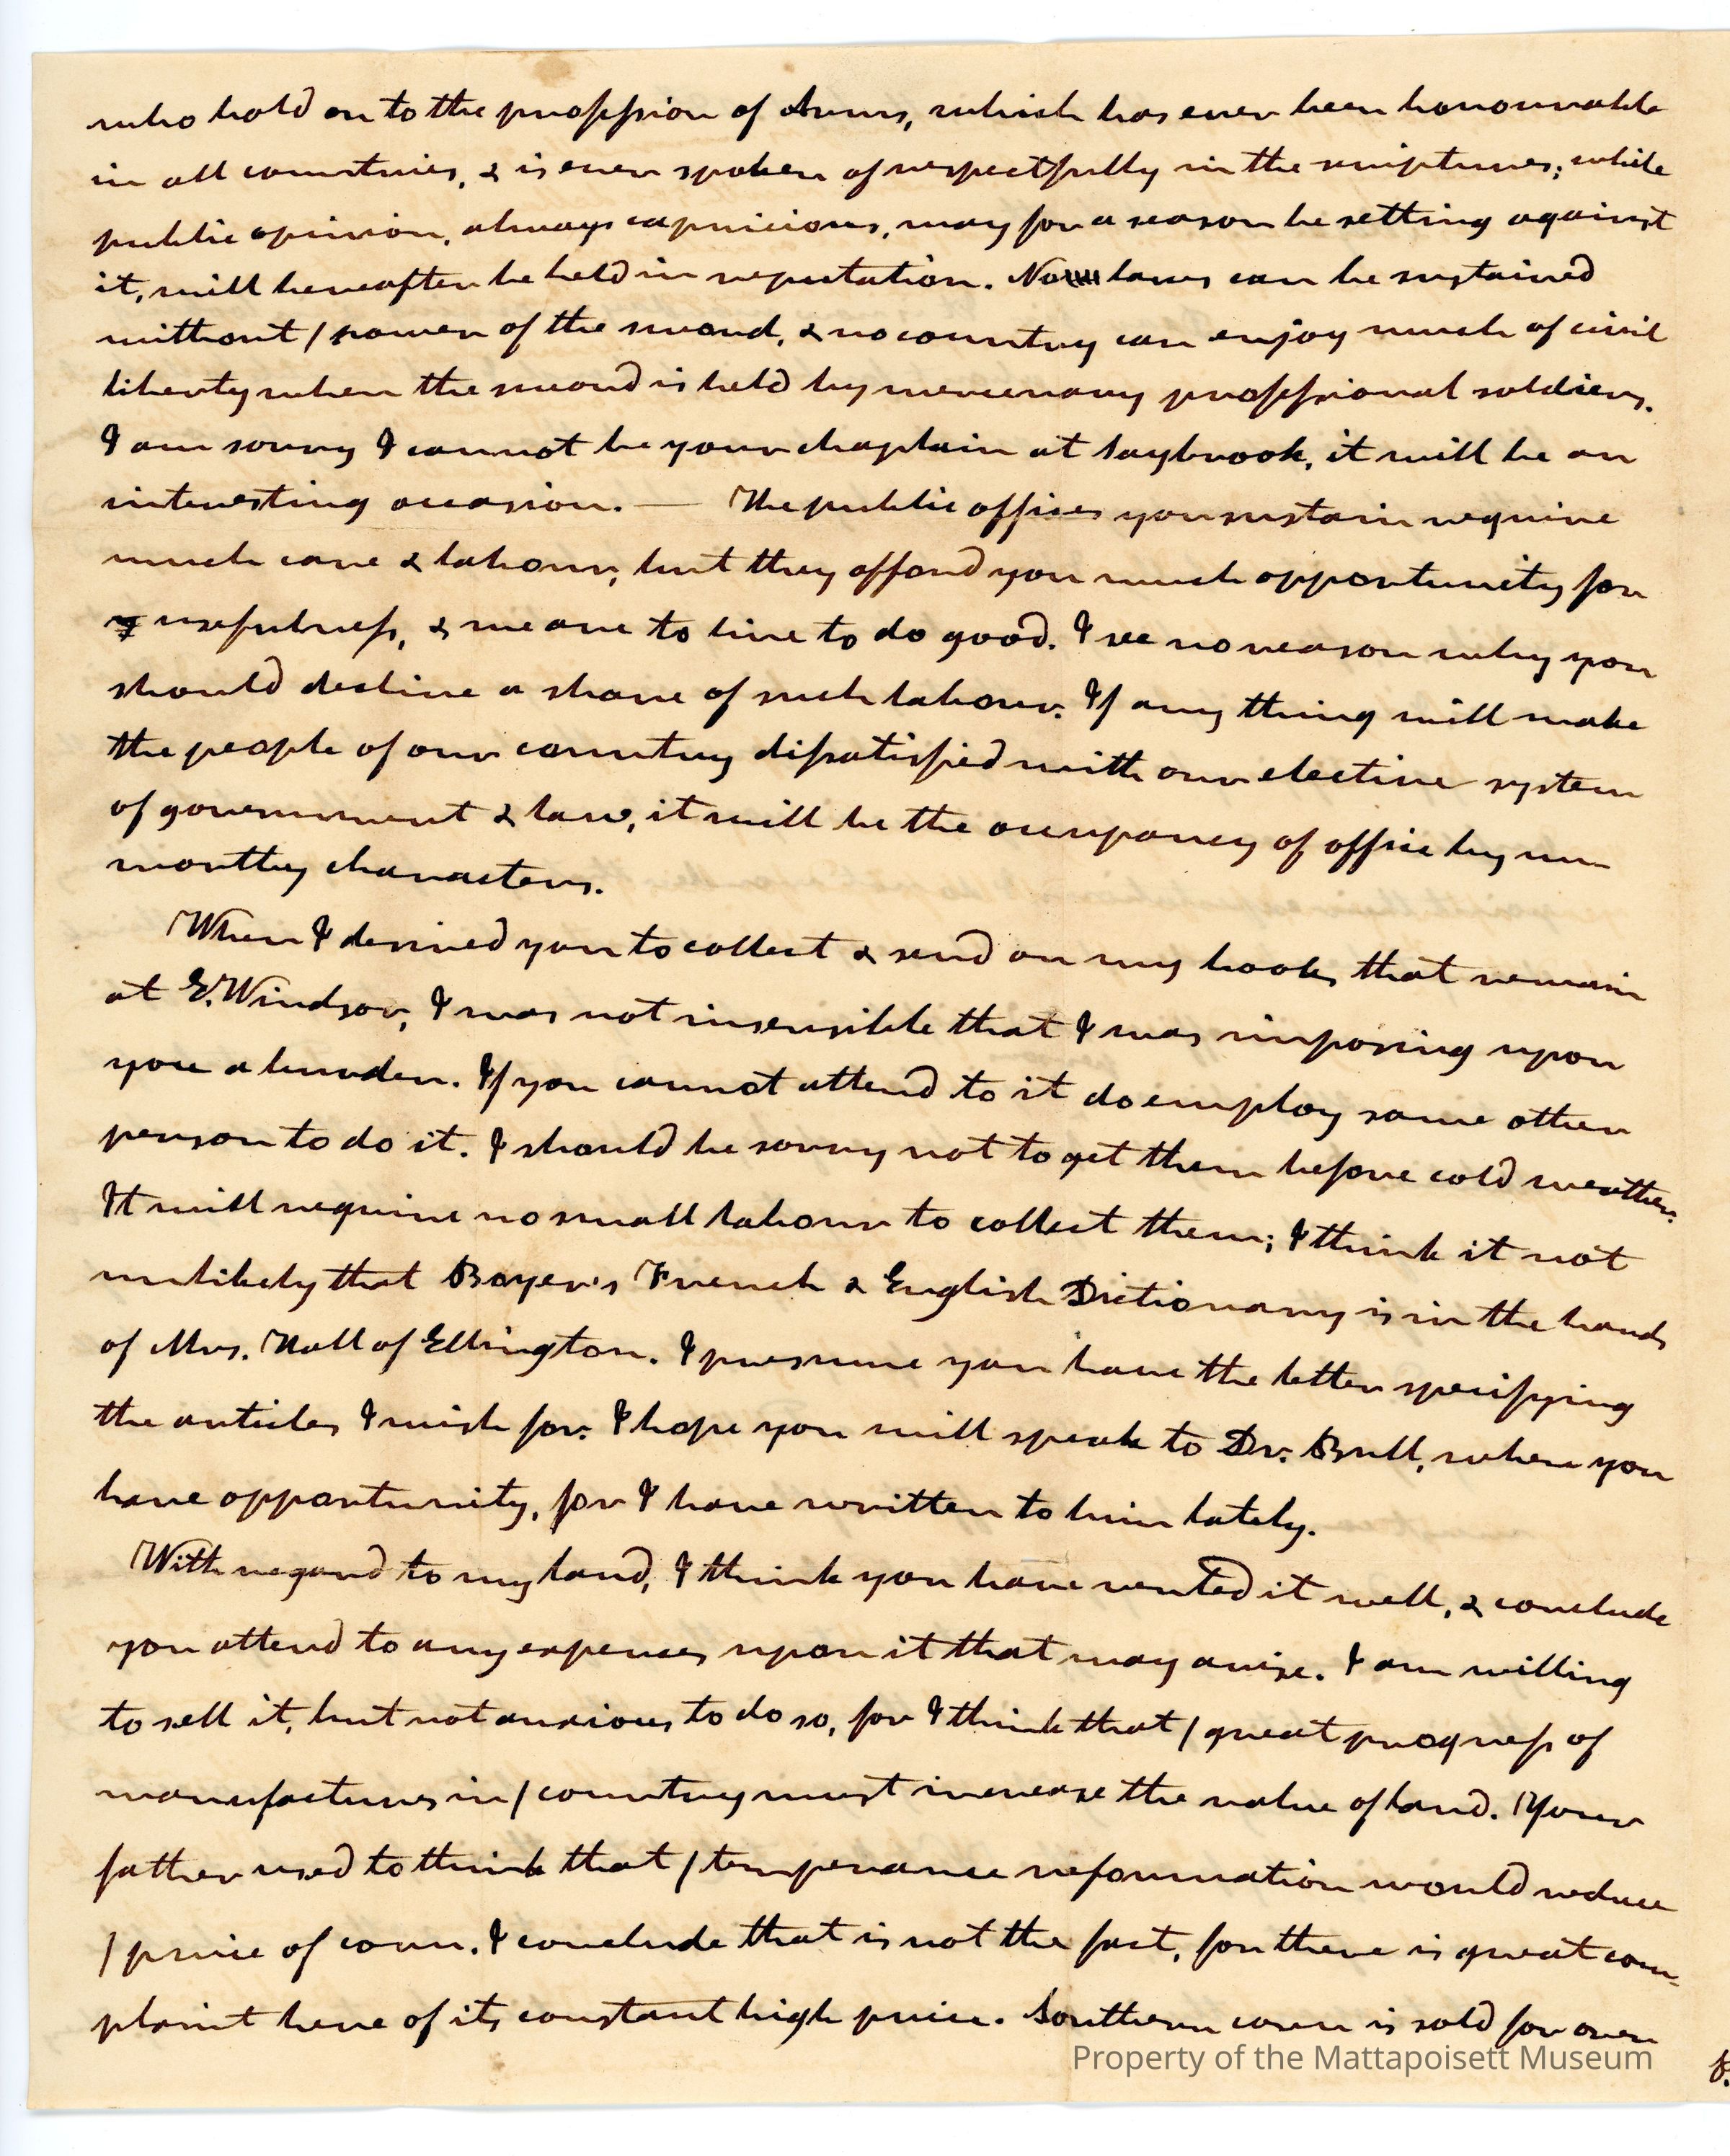 who hold on to the profession of Arms, which has ever been honourable
in all countries, & is even spoken of respectfully in the scriptures; while
public opinion, always capricious, may for a season be setting against
it, will hereafter be held in reputation. No laws can be sustained
without / power of the sword, & no country can enjoy much of civil
liberty when the sword is held by mercenary professional soldiers.
I am sorry I cannot be your chaplain at Saybrook, it will be an
interesting occasion. — The public offices you sustain require
much care & labour, but they afford you much opportunity for
usefulness, & we are to live to do good. I see no reason why you
should decline a share of such labour. If any thing will make
the people of our country dissatisfied with our elective system
of government & law, it will be the occupancy of office by un
worthy characters.
When I desired you to collect & send on my books that remain
at E. Windsor, I was not insensible that I was imposing upon
you a burden. If you cannot attend to it do employ some other
person to do it. I should be sorry not to get them before cold weather.
It will require no small labour to collect them; I think it not
unlikely that Boyer's French & English Dictionary is in the hands
of Mrs. Hall of Ellington. I presume you have the letter specifying
the articles I wish for. I hope you will speak to Dr. Bull, when you
have opportunity, for I have written to him lately.
With regard to my land, I think you have rented it well, & conclude
you attend to any expenses upon it that may arise. I am willing
to sell it, but not anxious to do so, for I think that / great progress of
manufactures in / country must increase the value of land. Your
father used to think that / temperance reformation would reduce
/ price of corn. I conclude that is not the fact, for there is great com-
plaint here of its constant high price. Southern corn is sold for over
Property of the Mattapoisett Museum